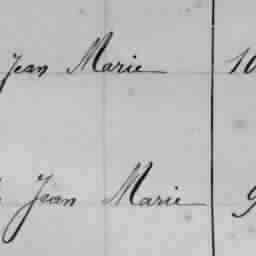 Jean Marie 10
Jean Marie 9